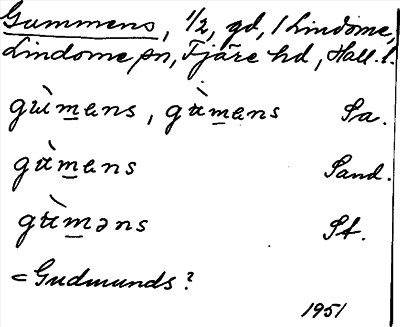 Gummens, 1/2, gd, i Lindome,
Lindome sn, Fjäre hd, Hall. l.
gɯ̀m̲ens, gʉ̀m̲ens Sa.
gʉ̀m̲ens Sand.
gʉ̀m̲əns St.
< Gudmunds?
1951